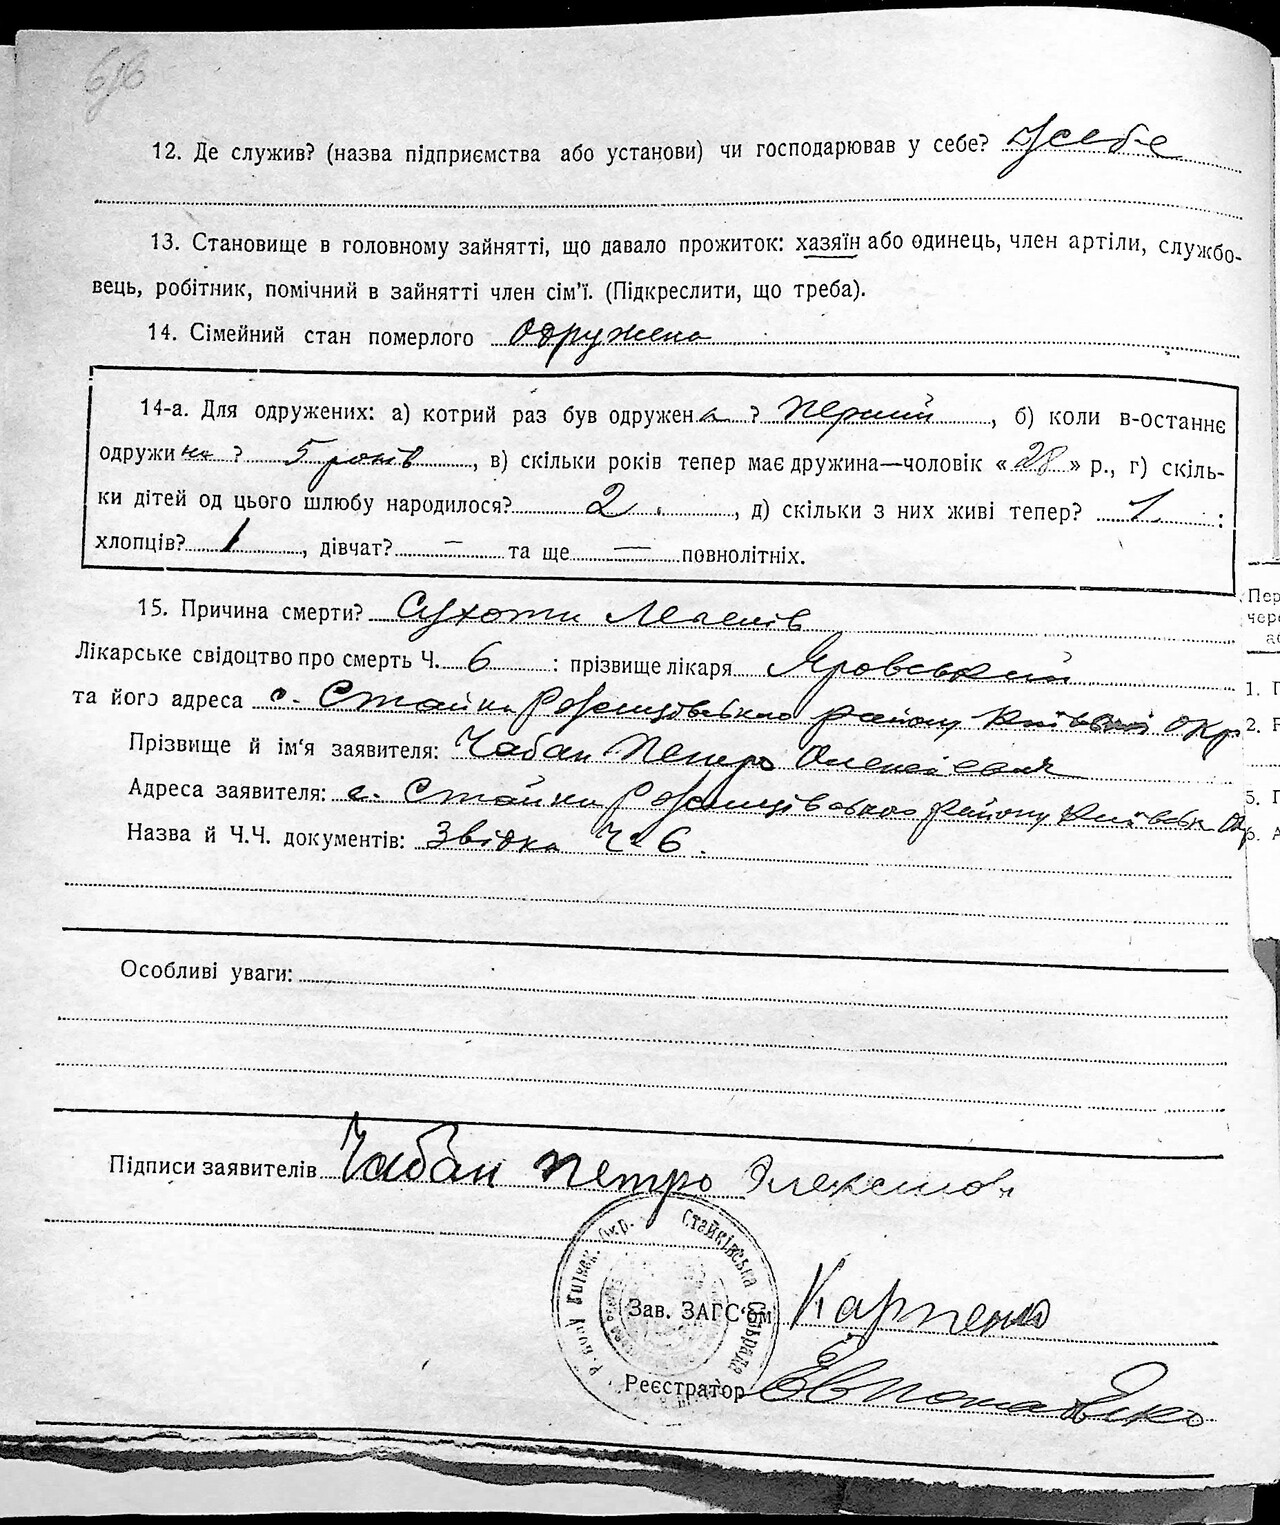 12. Де служив? (назва підприємства або установи) чи господарював у себе? У себе
13. Становище в головному зайнятті, що давало прожиток: хазяїн або одинець, член артіли, службо-
вець, робітник, помічний в зайнятті член сім'ї. (Підкреслити, що треба).
14. Сімейний стан померлого одружена
14-а. Для одружених: а) котрий раз був одружена ? перший, б) коли в-останнє
одружи ? 5 років, в) скільки років тепер має дружина—чоловік « 28 » р., г) скіль-
ки дітей од цього шлюбу народилося? 2, д) скільки з них живі тепер? 1 :
хлопців? 1, дівчат? — та ще — повнолітніх.
15. Причина смерти? Сухоти Легенів
Лікарське свідоцтво про смерть Ч. 6 : прізвище лікаря Яровський
та його адреса с. Стайки району Київської окр
Прізвище й ім'я заявителя: Чабан Петро Олексієвич
Адреса заявителя: с. Стайки району Київськ. Окр
Назва й Ч.Ч. документів: Звідка Ч. 6.
Особливі уваги:
Підписи заявителів Чабан Петро
Стайківська Сільрада
Зав. ЗАГС'ом Карпенко
Реєстратор
Пер
чере
1. П
2.
5. П
6. А